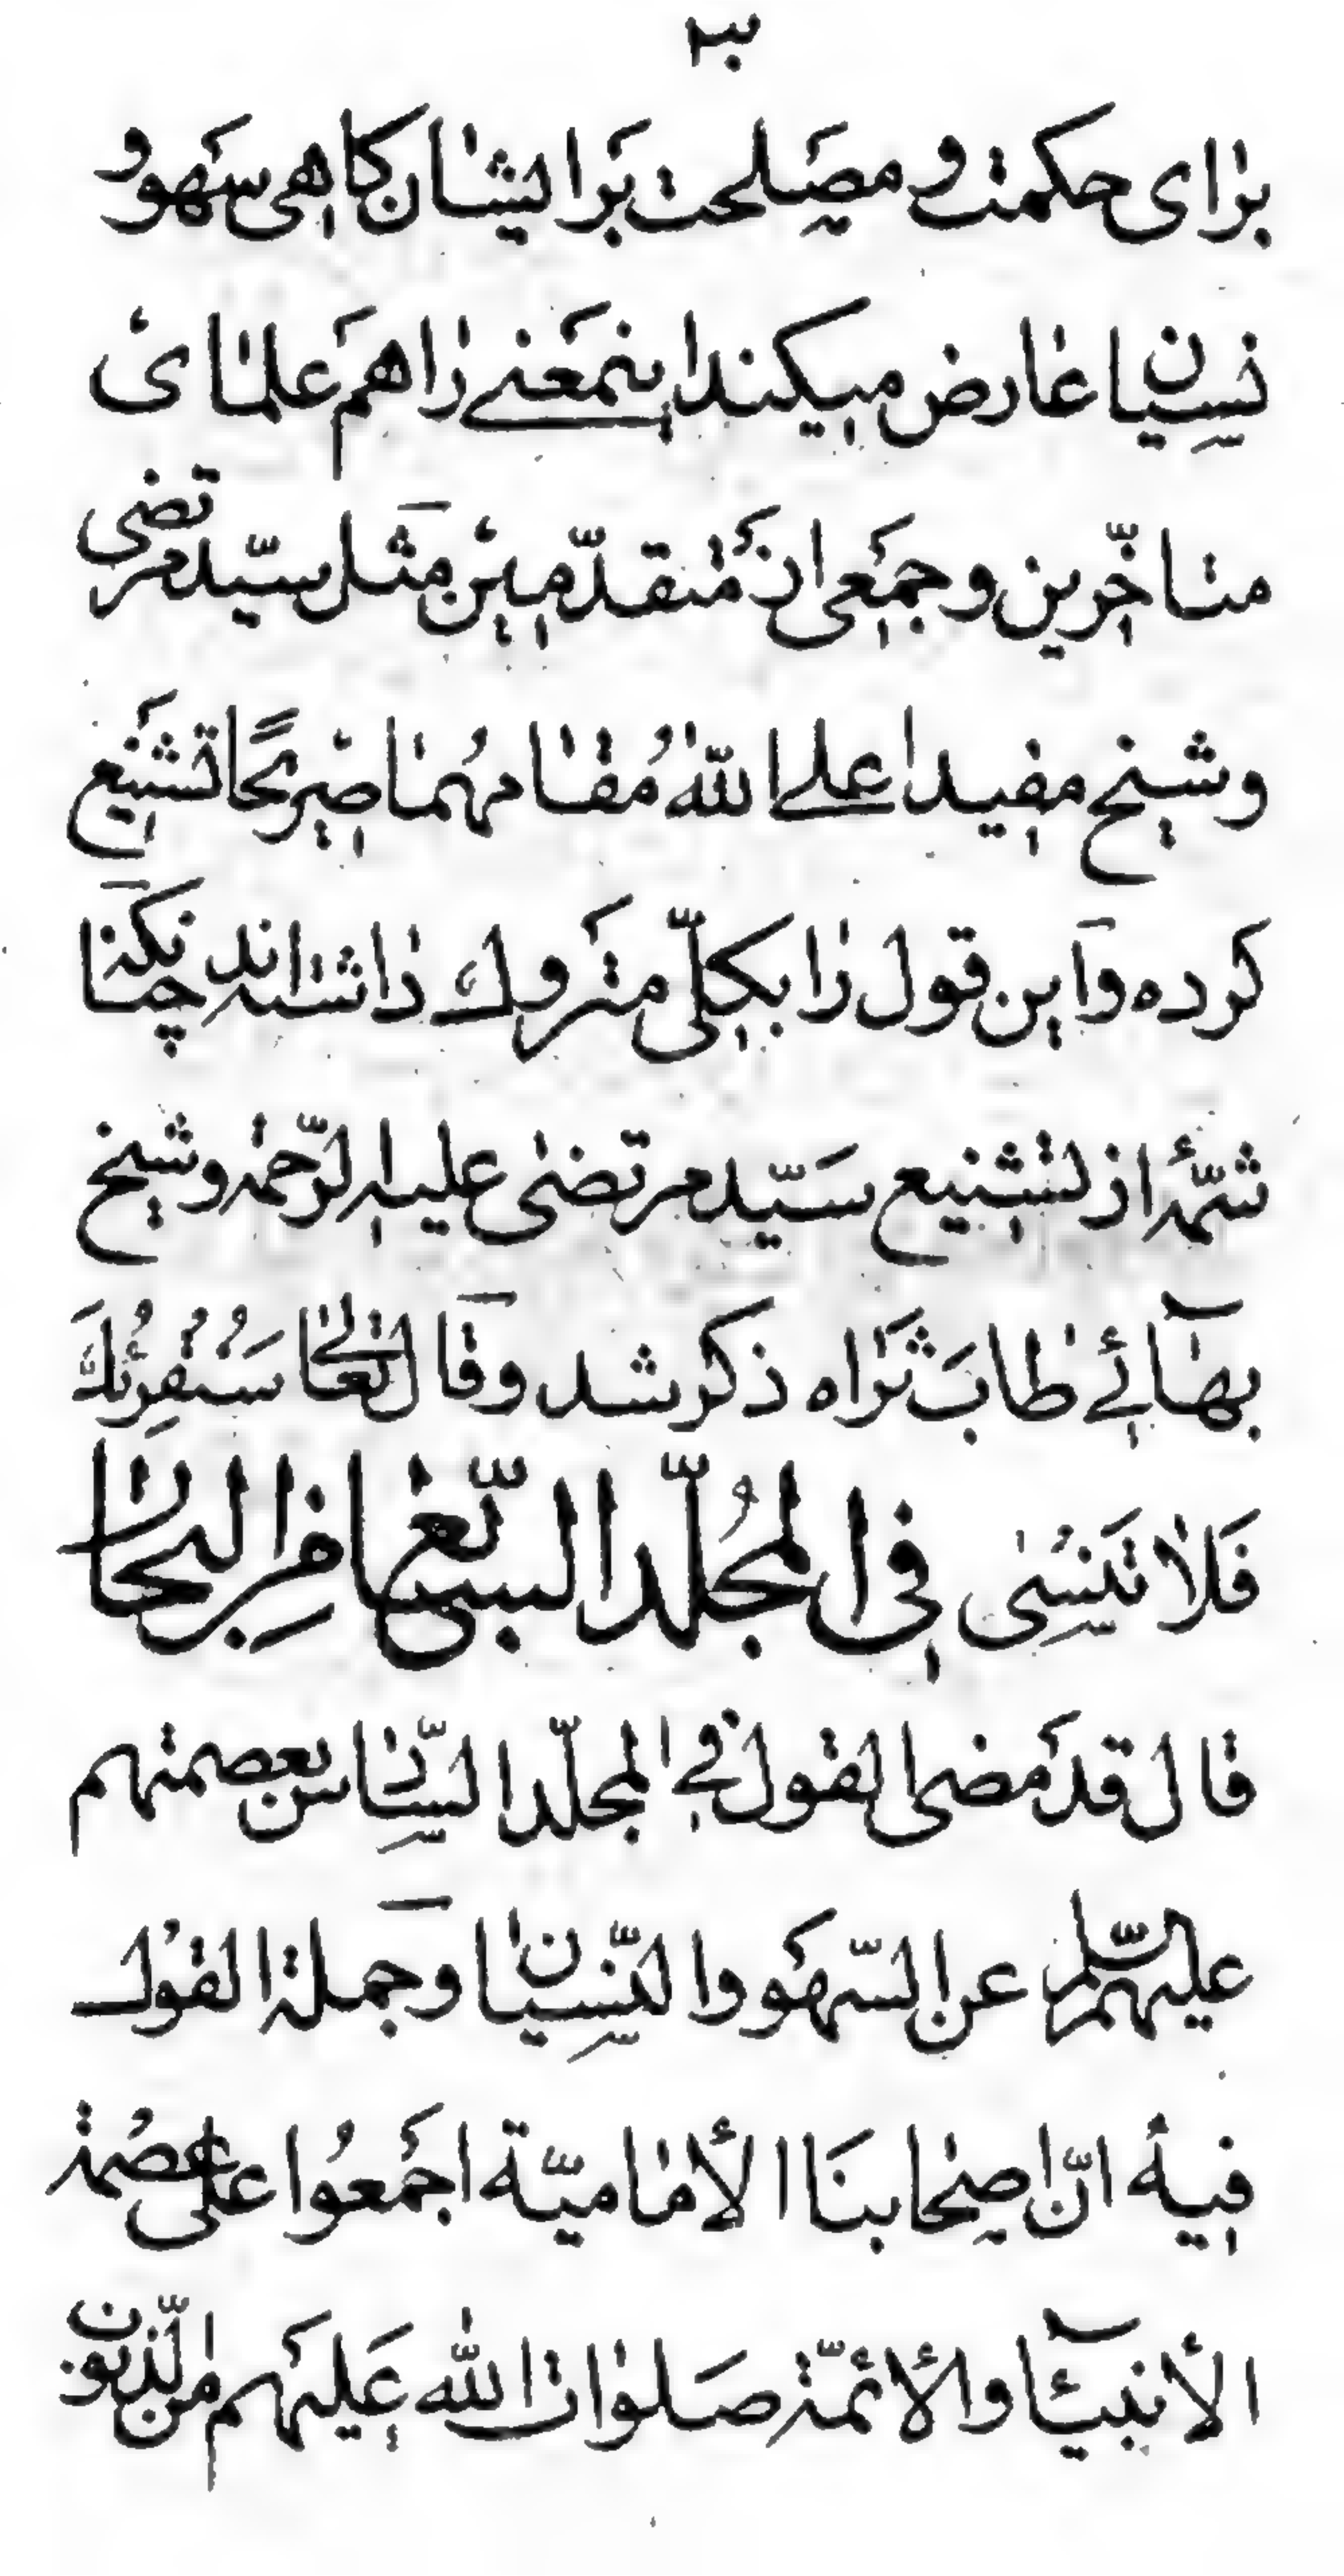 برای حکمت و مصلحت بر ایشان کاهی سهو و
نسیان عارض میکند اینمعنے را هم علمای
متاخّرین و جمعی از متقدّمین مثل سیّد مرتضی
و شیخ مفید اعلے الله مُقامهُما صریحًا تشنیع
کرده و این قول را بکلّی متروک داشته‌اند چنانکه
شمّهٔ از تشنیع سیّد مرتضی علیه الرّحمه و شیخ
بهآئے طاب ثراه ذکر شد و قال تعالی سَنُقرِئُكَ
فَلا تَنسٰى فی المُجلّد السّابع من البحار
قال قد مضی القول فی المجلّد السّادس بعصمتهم
علیهم السّلم عن السّهو و النّسیان و جملة القول
فیه انّ اصحابنا الأمامیّة اجمعُوا علی عصمة
الأنبیآء و الأئمّة صلوات الله علیهم من الذّنوب